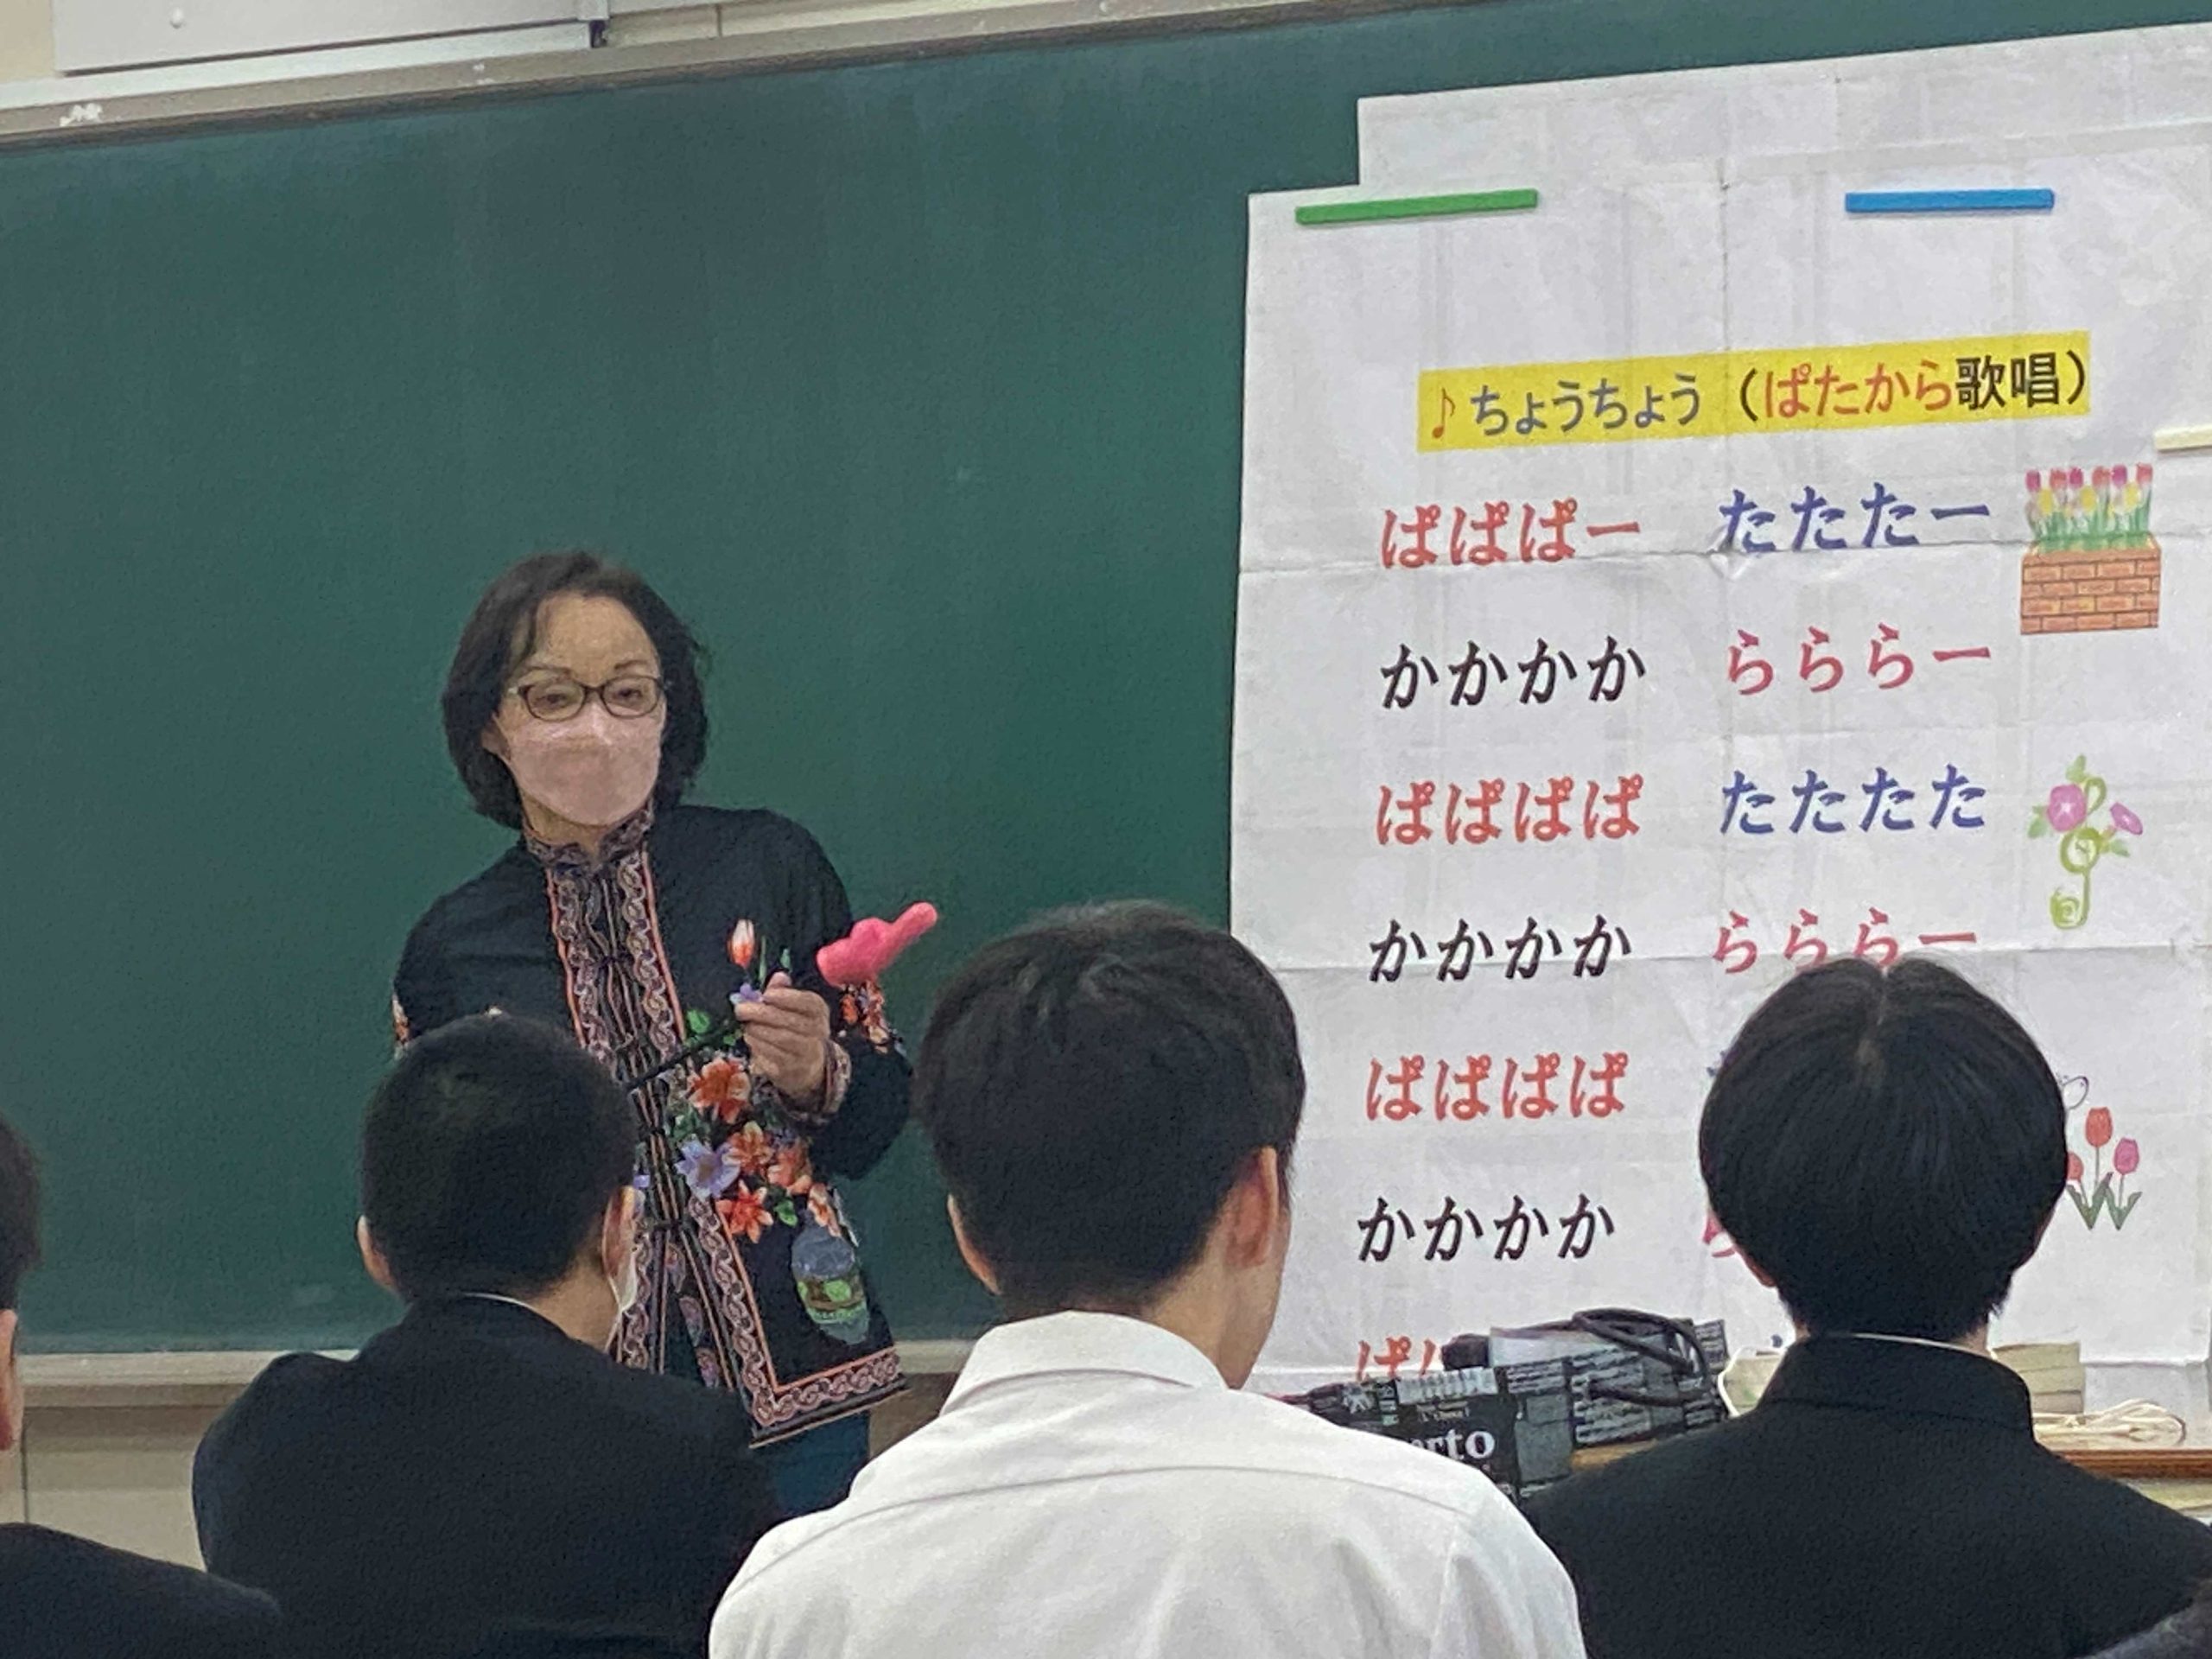 ♪ちょうちょう（ぱたから歌唱）
ぱぱぱー　たたたー
かかかか　らららー
ぱぱぱぱ　たたたた
かかかか　らららー
ぱぱぱぱ
かかかか
ぱ